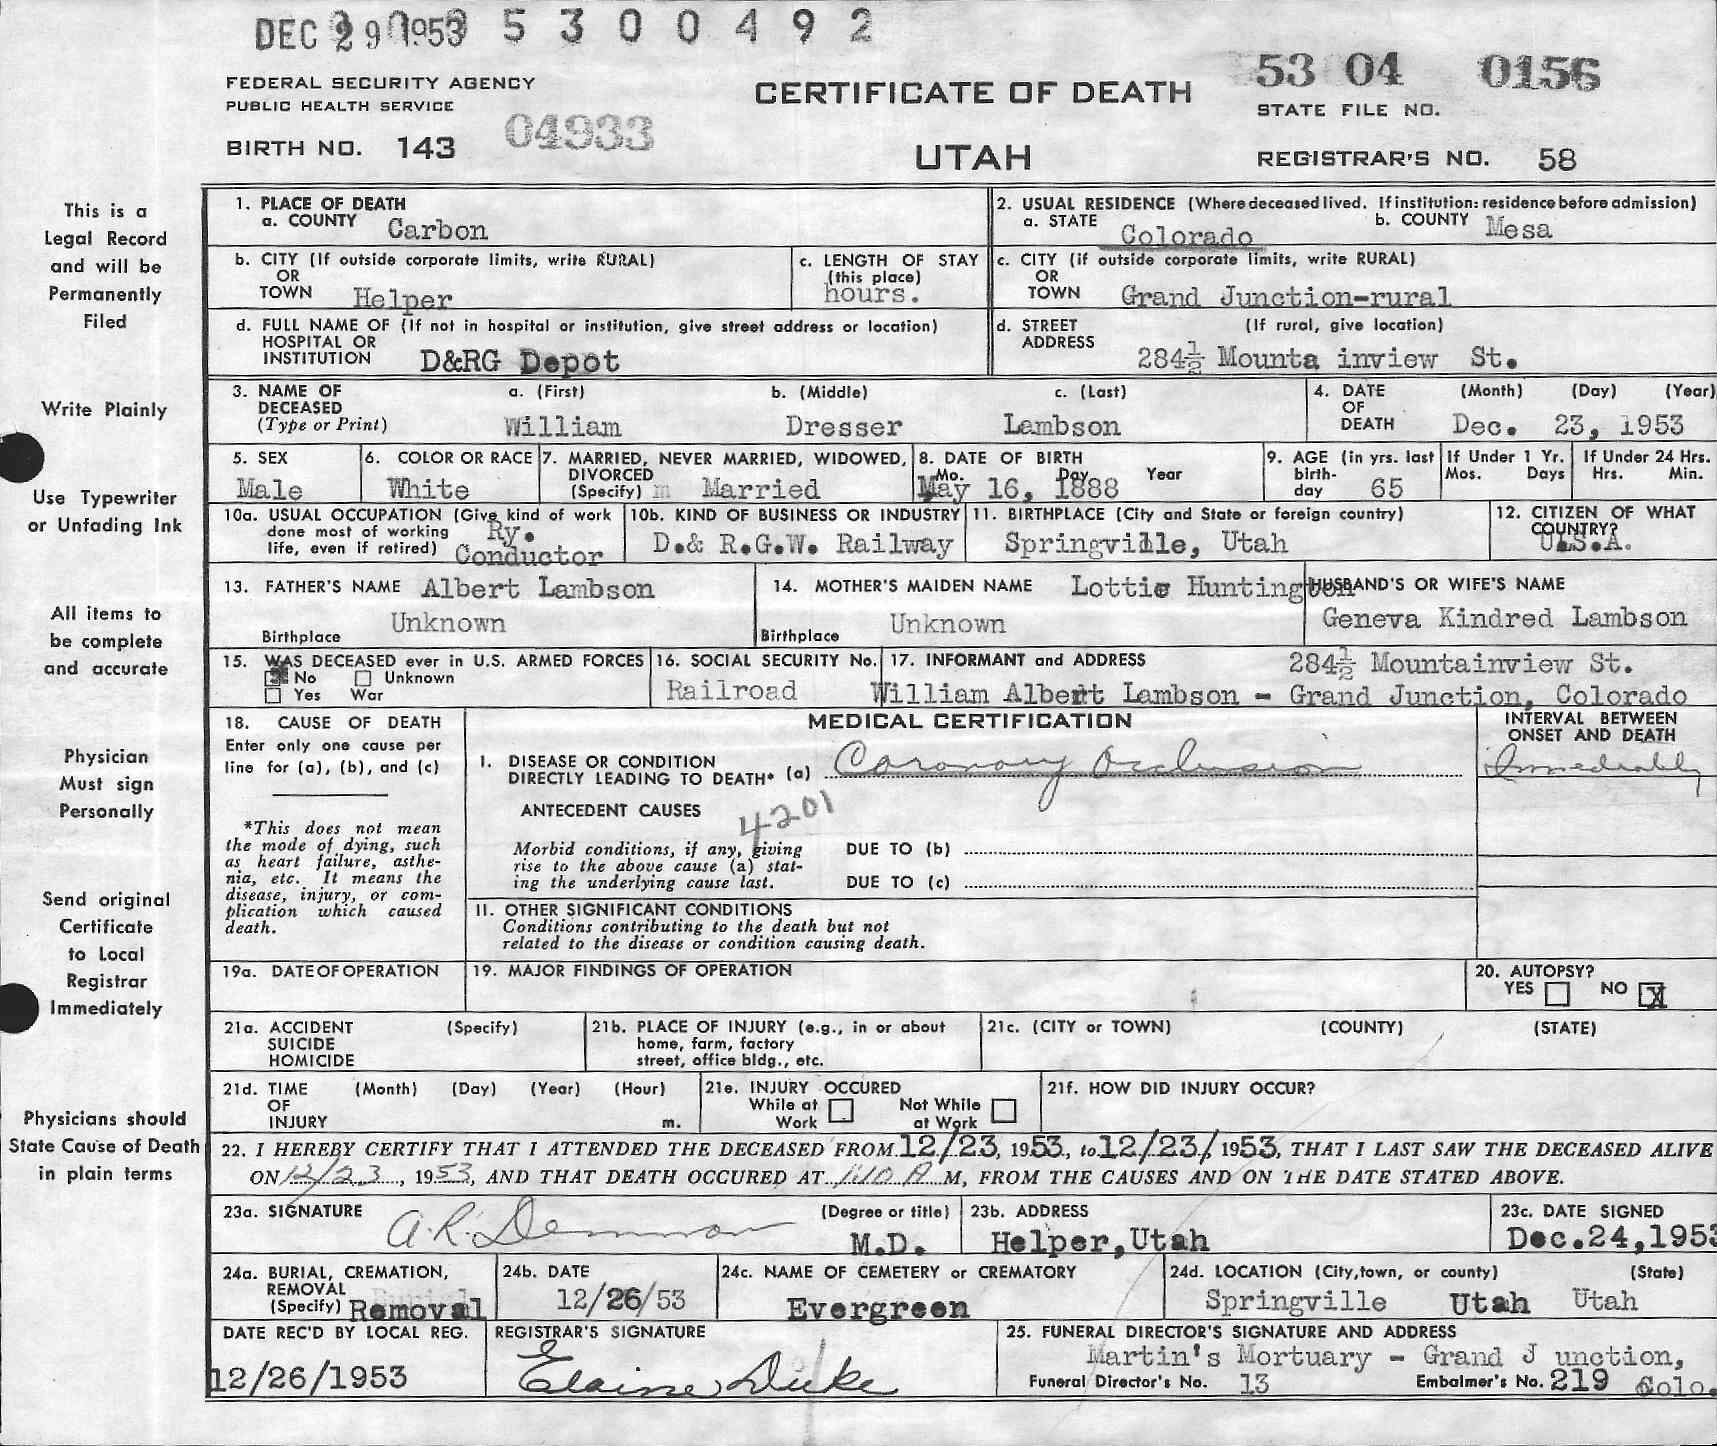 DEC 29 1953 5 3 0 0 4 9 2
FEDERAL SECURITY AGENCY
PUBLIC HEALTH SERVICE
BIRTH NO. 143 04933
CERTIFICATE OF DEATH
UTAH
53 04 0156
STATE FILE NO.
REGISTRAR'S NO. 58
This is a
Legal Record
and will be
Permanently
Filed
Write Plainly
Use Typewriter
or Unfading Ink
All items to
be complete
and accurate
Physician
Must sign
Personally
Send original
Certificate
to Local
Registrar
Immediately
Physicians should
State Cause of Death
in plain terms
1. PLACE OF DEATH
a. COUNTY Carbon
2. USUAL RESIDENCE (Where deceased lived. If institution: residence before admission)
a. STATE Colorado b. COUNTY Mesa
b. CITY (If outside corporate limits, write RURAL)
OR
TOWN Helper
c. LENGTH OF STAY
(this place)
hours.
c. CITY (if outside corporate limits, write RURAL)
OR
TOWN Grand Junction-rural
d. FULL NAME OF (If not in hospital or institution, give street address or location)
HOSPITAL OR
INSTITUTION D&RG Depot
d. STREET (If rural, give location)
ADDRESS
284½ Mounta inview St.
3. NAME OF a. (First) b. (Middle) c. (Last)
DECEASED
(Type or Print) William Dresser Lambson
4. DATE (Month) (Day) (Year)
OF
DEATH Dec. 23, 1953
5. SEX
Male
6. COLOR OR RACE
White
7. MARRIED, NEVER MARRIED, WIDOWED,
DIVORCED
(Specify) m Married
8. DATE OF BIRTH
Mo. Day Year
May 16, 1888
9. AGE (in yrs. last
birth-
day 65
If Under 1 Yr.
Mos. Days
If Under 24 Hrs.
Hrs. Min.
10a. USUAL OCCUPATION (Give kind of work
done most of working
life, even if retired) Ry.
Conductor
10b. KIND OF BUSINESS OR INDUSTRY
D.& R.G.W. Railway
11. BIRTHPLACE (City and State or foreign country)
Springville, Utah
12. CITIZEN OF WHAT
COUNTRY?
U.S.A.
13. FATHER'S NAME Albert Lambson
Birthplace Unknown
14. MOTHER'S MAIDEN NAME Lottie Huntington
Birthplace Unknown
HUSBAND'S OR WIFE'S NAME
Geneva Kindred Lambson
15. WAS DECEASED ever in U.S. ARMED FORCES
No Unknown
Yes War
16. SOCIAL SECURITY No.
Railroad
17. INFORMANT and ADDRESS 284½ Mountainview St.
William Albert Lambson - Grand Junction, Colorado
18. CAUSE OF DEATH
Enter only one cause per
line for (a), (b), and (c)
*This does not mean
the mode of dying, such
as heart failure, asthe-
nia, etc. It means the
disease, injury, or com-
plication which caused
death.
MEDICAL CERTIFICATION
INTERVAL BETWEEN
ONSET AND DEATH
I. DISEASE OR CONDITION
DIRECTLY LEADING TO DEATH* (a) Coronary Occlusion Immediately
ANTECEDENT CAUSES 4201
Morbid conditions, if any, giving
rise to the above cause (a) stat-
ing the underlying cause last.
DUE TO (b)
DUE TO (c)
II. OTHER SIGNIFICANT CONDITIONS
Conditions contributing to the death but not
related to the disease or condition causing death.
19a. DATE OF OPERATION
19. MAJOR FINDINGS OF OPERATION
20. AUTOPSY?
YES NO X
21a. ACCIDENT (Specify)
SUICIDE
HOMICIDE
21b. PLACE OF INJURY (e.g., in or about
home, farm, factory
street, office bldg., etc.
21c. (CITY or TOWN) (COUNTY) (STATE)
21d. TIME (Month) (Day) (Year) (Hour)
OF
INJURY m.
21e. INJURY OCCURED
While at Not While
Work at Work
21f. HOW DID INJURY OCCUR?
22. I HEREBY CERTIFY THAT I ATTENDED THE DECEASED FROM 12/23, 1953, to 12/23/, 1953, THAT I LAST SAW THE DECEASED ALIVE
ON 12/23, 1953, AND THAT DEATH OCCURED AT 1:10 A M, FROM THE CAUSES AND ON THE DATE STATED ABOVE.
23a. SIGNATURE A.R. Demman (Degree or title)
M.D.
23b. ADDRESS
Helper, Utah
23c. DATE SIGNED
Dec.24,1953
24a. BURIAL, CREMATION,
REMOVAL
(Specify) Removal
24b. DATE
12/26/53
24c. NAME OF CEMETERY or CREMATORY
Evergreen
24d. LOCATION (City, town, or county) (State)
Springville Utah Utah
DATE REC'D BY LOCAL REG.
12/26/1953
REGISTRAR'S SIGNATURE
Elaine Duke
25. FUNERAL DIRECTOR'S SIGNATURE AND ADDRESS
Martin's Mortuary - Grand J unction,
Funeral Director's No. 13 Embalmer's No. 219 Colo.